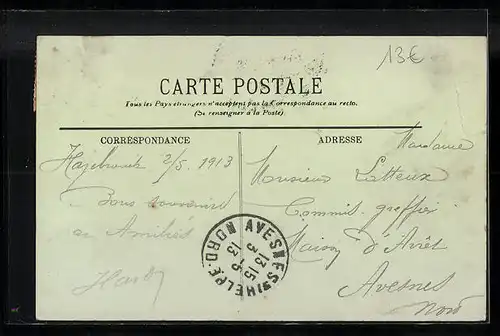 13€
CARTE POSTALE
Tous les Pays étrangers n'acceptent pas la Correspondance au recto.
(Se renseigner à la Poste).
CORRESPONDANCE
Hazebrouck 2/5 1913
Bons souvenirs
Amitiés
ADRESSE
Madame
Monsieur Latteux
Commis greffier
Maison d'Arrêt
Avesnes
Nord
AVESNES S/ HELPE NORD
13 15
3 - 5
13